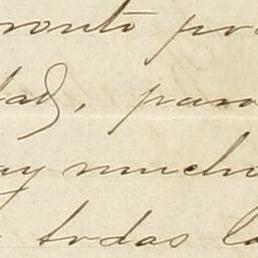 ronto pro
dad, para
ay mucho
todas la